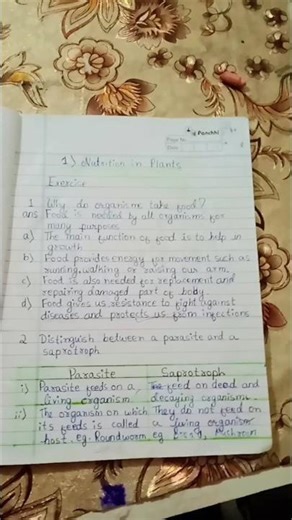 Panchhi
Page No.
Date
1) Nutrition in Plants
Exercise
1 Why do organisms take food?
ans Food is needed by all organisms for
many purposes
a) The main function of food is to help in
growth
b) Food provides energy for movement such as
running, walking or raising our arm.
c) Food is also needed for replacement and
repairing damaged part of body
d) Food gives us resistance to fight against
diseases and protects us from infections
2 Distinguish between a parasite and a
saprotroph
Parasite Saprotroph
i) Parasite feeds on a feed on dead and
living organism decaying organism
ii) The organism on which They do not feed on
its feeds is called a living organism
host. eg. Roundworm eg. Mushroom